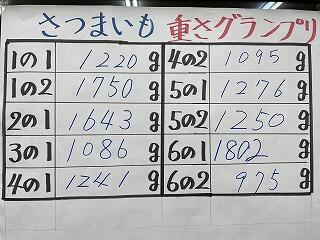 さつまいも 重さグランプリ
1の1 1220 g 4の2 1095 g
1の2 1750 g 5の1 1276 g
2の1 1643 g 5の2 1250 g
3の1 1086 g 6の1 1802 g
4の1 1241 g 6の2 975 g